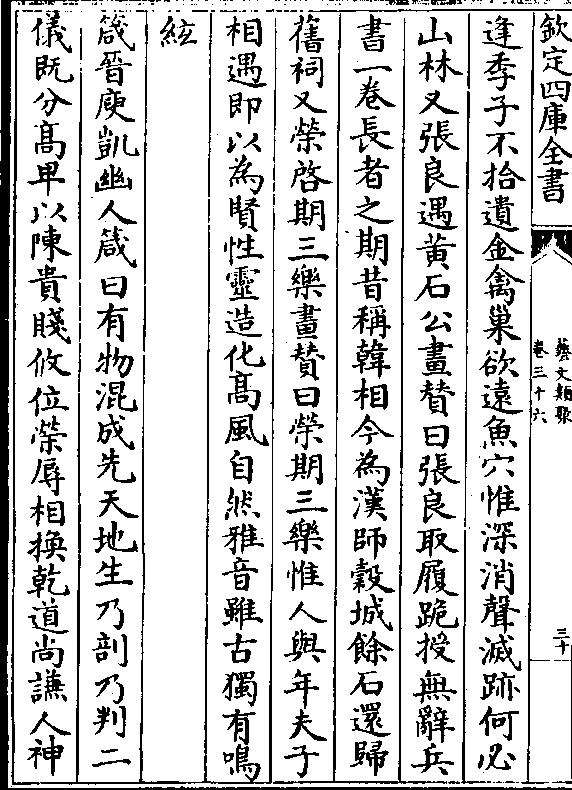 欽定四庫全書
藝文類聚
卷三十六
三十
逢季子不拾遺金禽巢欲遠魚穴惟深消聲滅跡何必
山林又張良遇黄石公畫賛曰張良取履跪授無辭兵
書一巻長者之期昔稱韓相今為漢師糓城餘石還歸
舊祠又榮啓期三樂畫賛曰榮期三樂惟人與年夫子
相遇即以為賢性靈造化髙風自然雅音雖古獨有鳴
絃
箴晉庾凱幽人箴曰有物混成先天地生乃剖乃判二
儀既分髙卑以陳貴賤攸位榮辱相換乾道尚謙人神